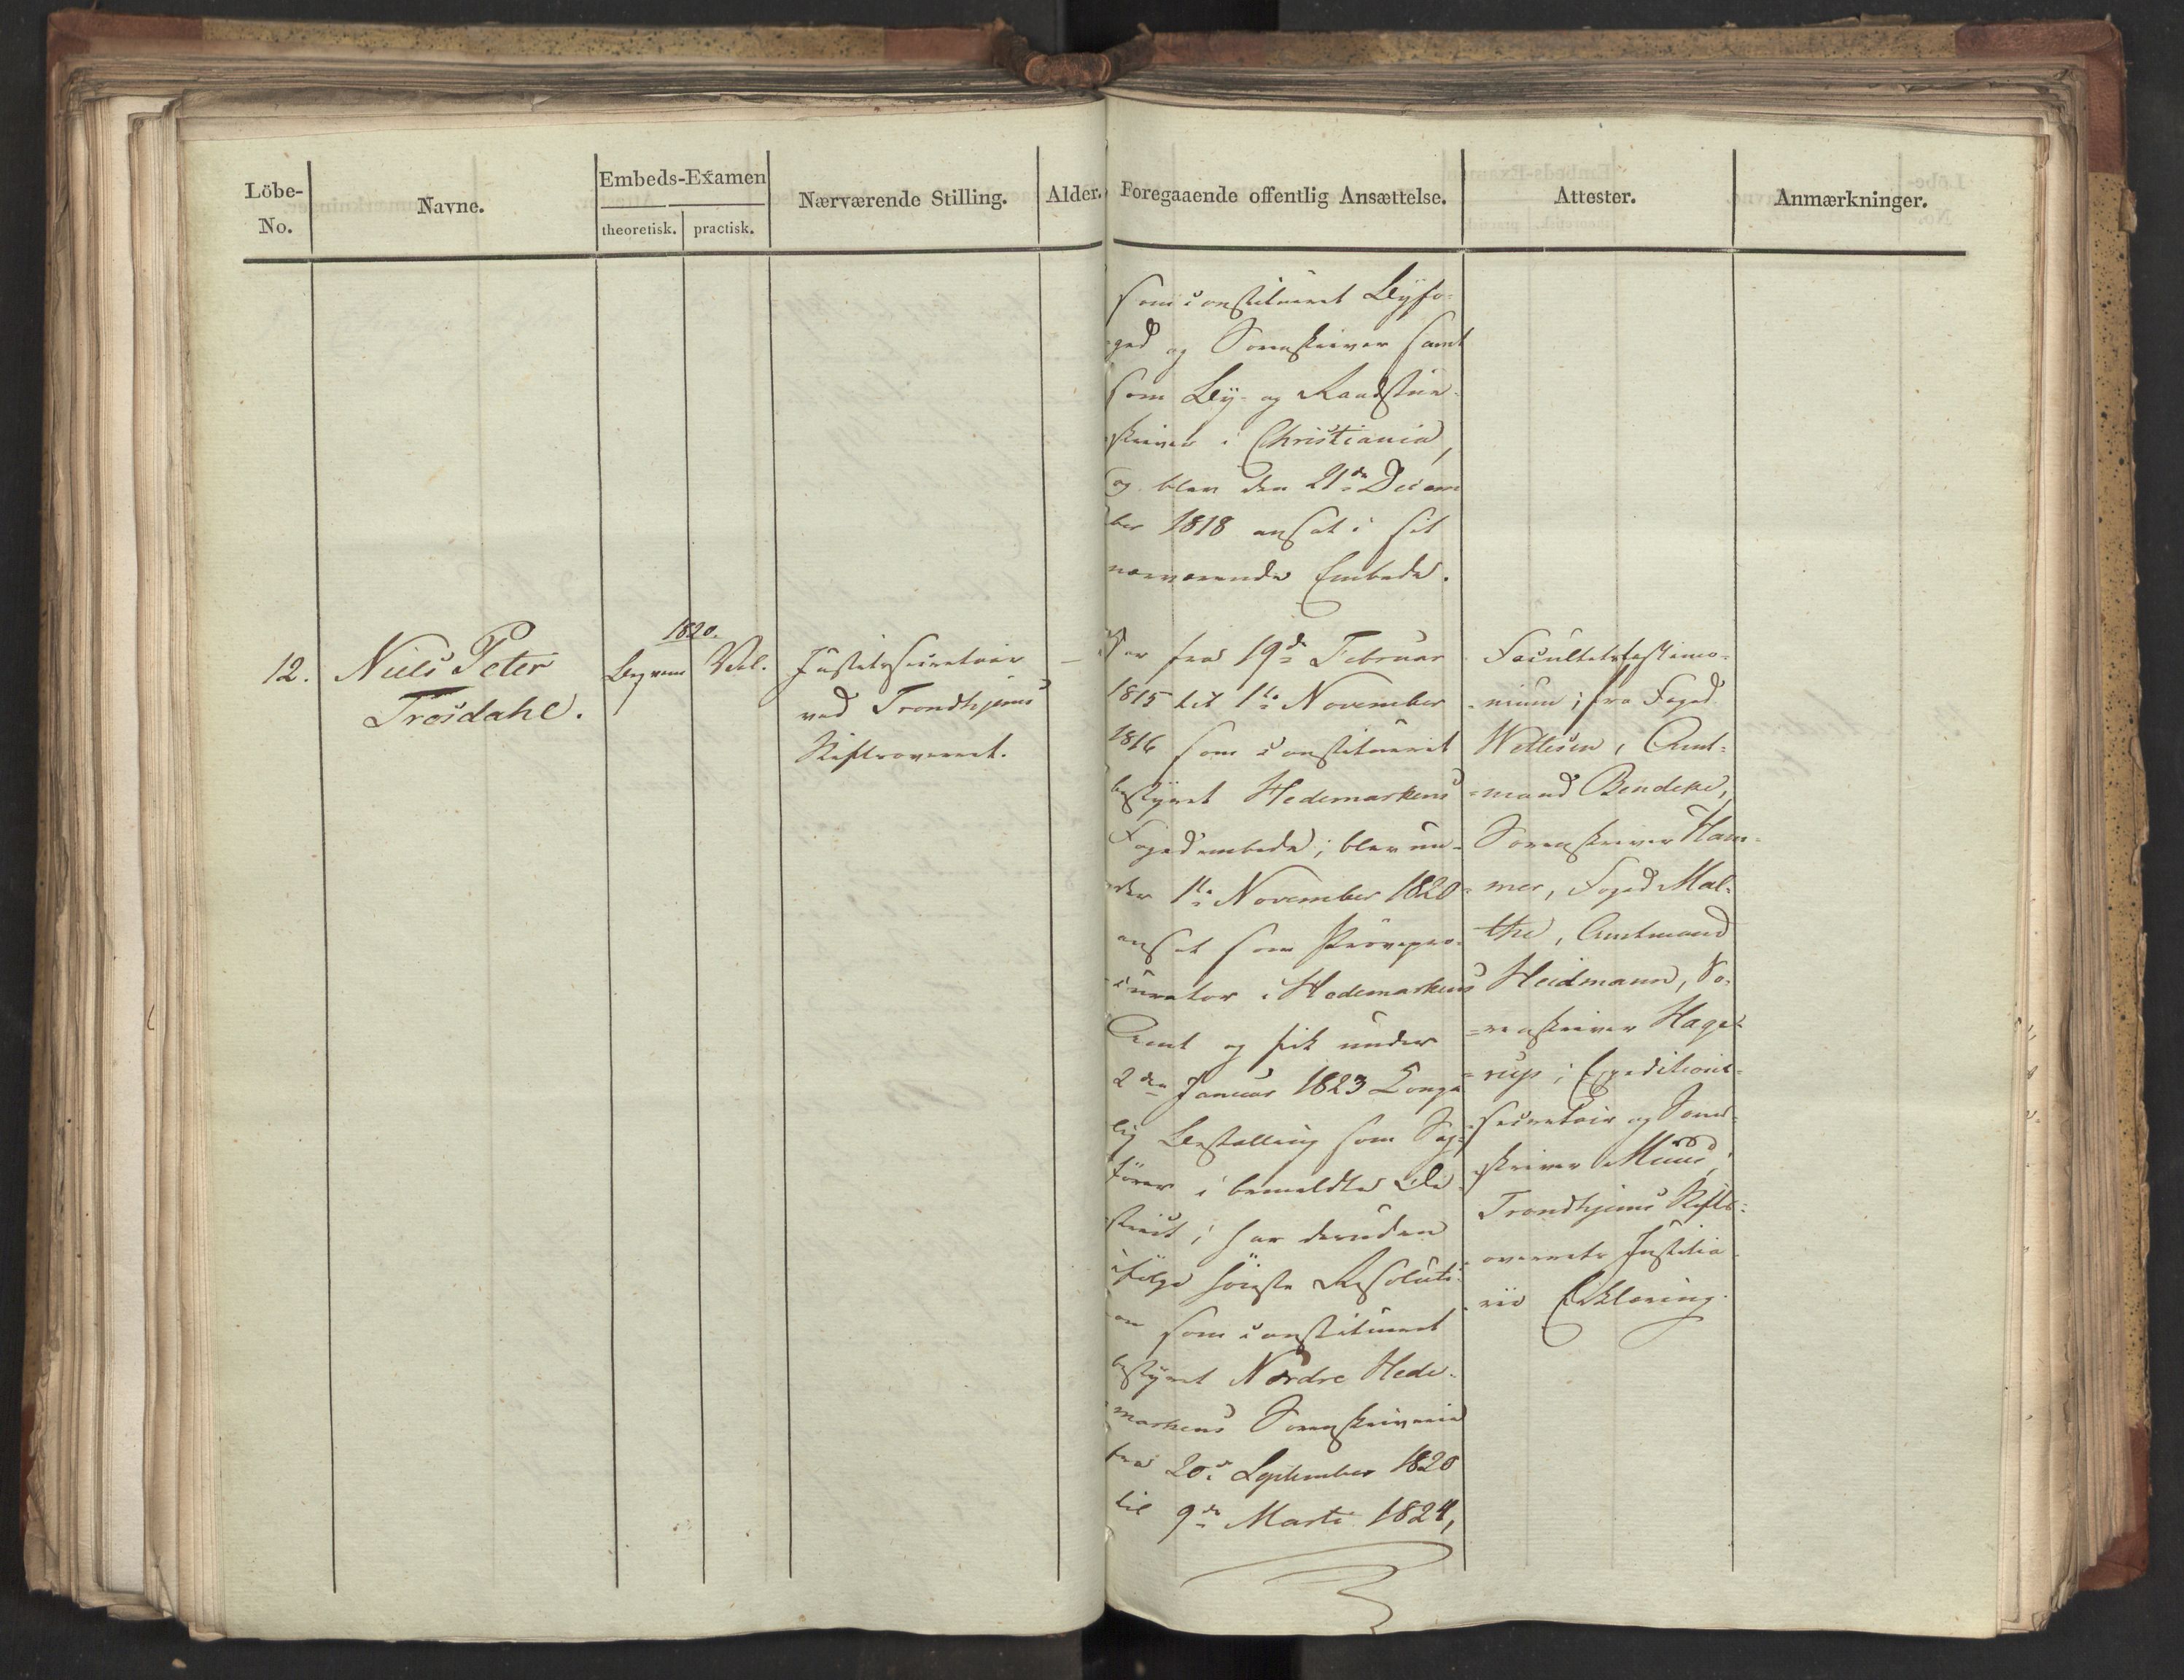 Löbe-
No.
Navne.
Embeds-Examen
theoretisk.
practisk.
Nærværende Stilling.
Alder.
Foregaaende offentlig Ansættelse.
Attester.
Anmærkninger.
som constitueret Byfo-
ged og Sorenskriver samt
som By- og Raadstue-
skriver i Christiania,
og blev den 21de Decem
ber 1818 ansat i sit
nærværende Embede.
12.
Niels Peter
Trosdahl.
1820.
Beqvem
Vel.
Justitssecretair
ved Trondhjems
Stiftsoverret.
–
Har fra 19de Februar
1815 til 1te November
1816 som constitueret
bestyret Hedemarkens
Fogedembede; blev un-
der 1te November 1820
ansat som Prøvepro-
curator i Hedemarkens
Amt og fik under
2den Januar 1823 Konge
lig Bestalling som Sag-
fører i bemeldte Di-
strict; har desuden
ifølge høieste Resoluti-
on som constitueret
bestyret Nordre Hede-
markens Sorenskriverie
fra 20de September 1820
til 9de Marts 1824,
Facultetstestimo-
nium; fra Foged
Wettesen, Amt-
mand Bendeke,
Sorenskriver Ham-
mer, Foged Mal-
the, Amtmand
Heidmann, So-
renskriver Hage-
rup; Expeditions-
secretair og Soren-
skriver Muus;
Trondhjems Stifts-
overrets Justitia-
rii Erklæring.